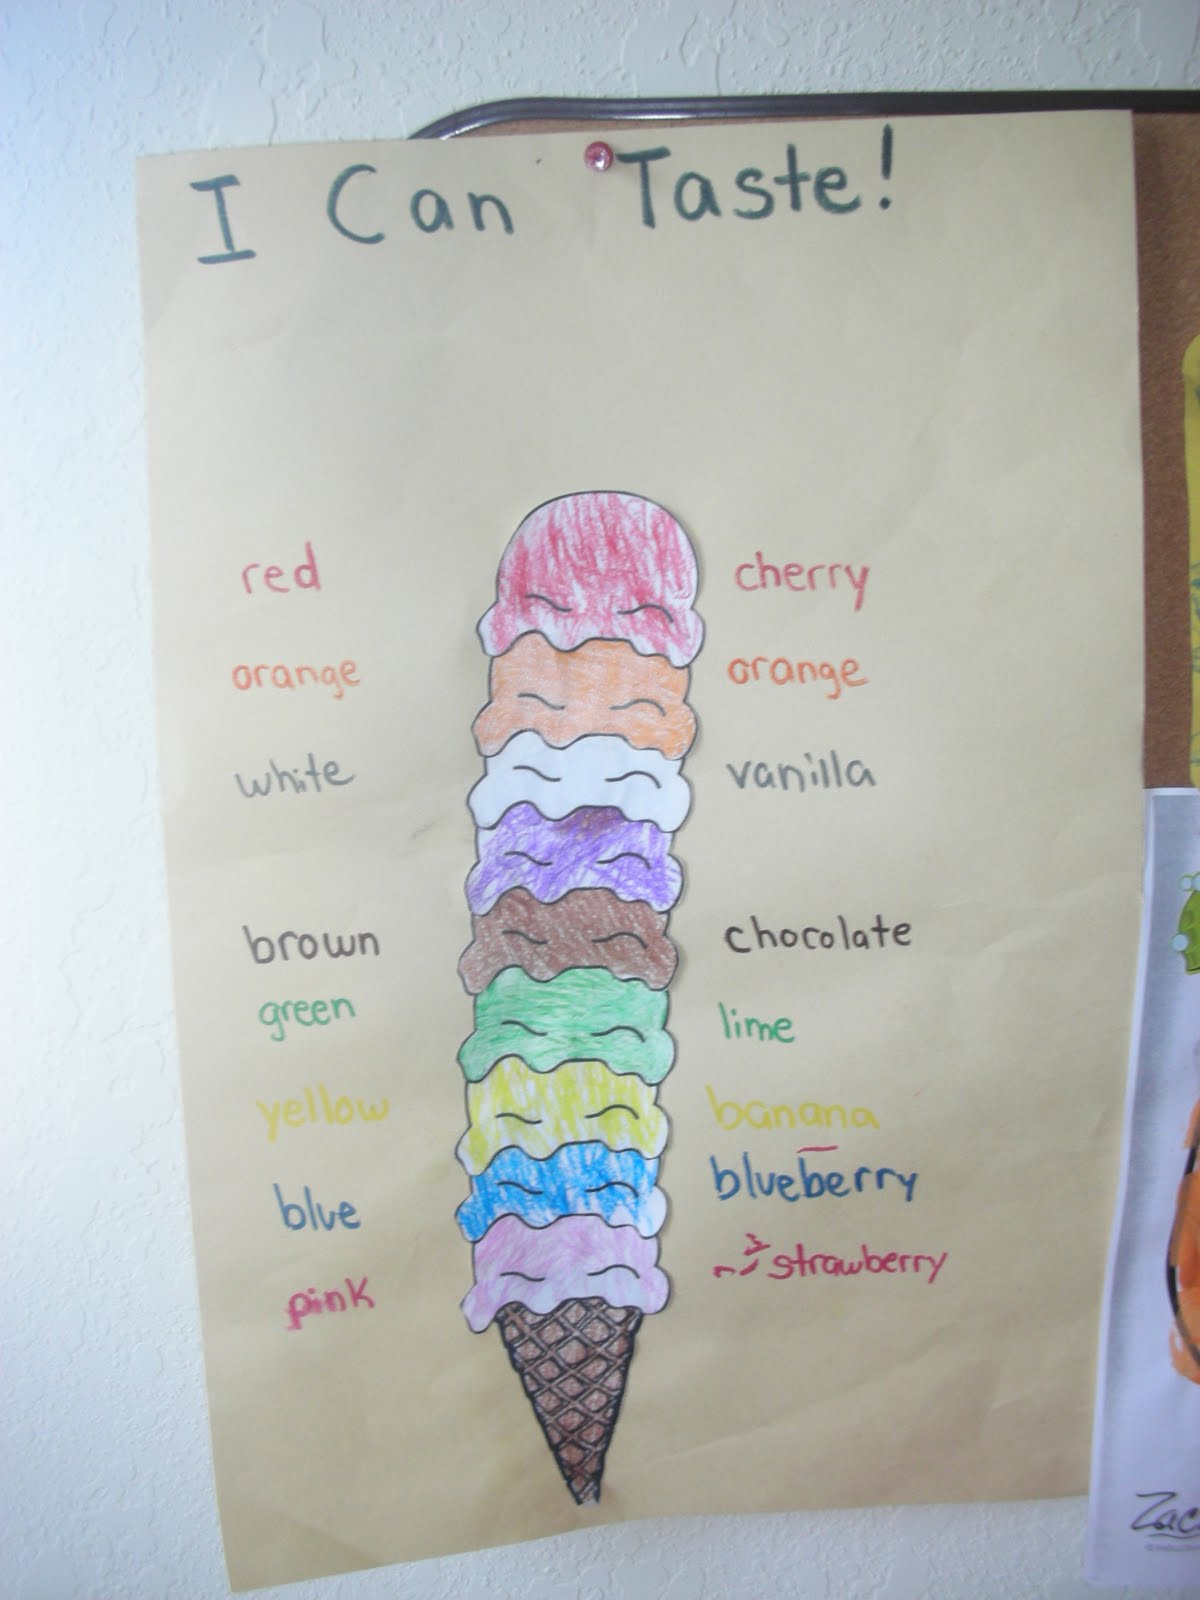 I Can Taste!
red cherry
orange orange
white vanilla
brown chocolate
green lime
yellow banana
blue blueberry
pink strawberry